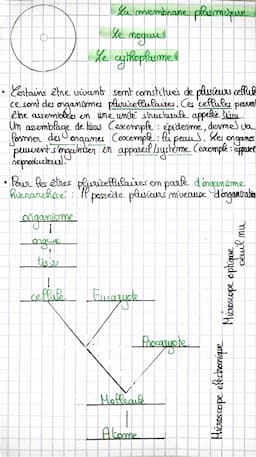 La membrane plasmique
Le noyau
Le cytoplasme
• Certains être vivant sont constitués de plusieurs cellul
ce sont des organismes pluricellulaires. Ces cellules peuvent
être assemblées en une unité structurale appelée tissu.
Un assemblage de tissus (exemple : épiderme, derme) va
former des organes (exemple : la peau). Les organes
peuvent s'organiser en appareil/système (exemple : appareil
reproducteur)
• Pour les êtres pluricellulaires on parle d'organisme
hiérarchisé : Il possède plusieurs niveaux d'organisation
organisme
organe
tissu
cellule Eucaryote
Procaryote
Molécule
Atome
Microscope optique
oeil nu
Microscope électronique